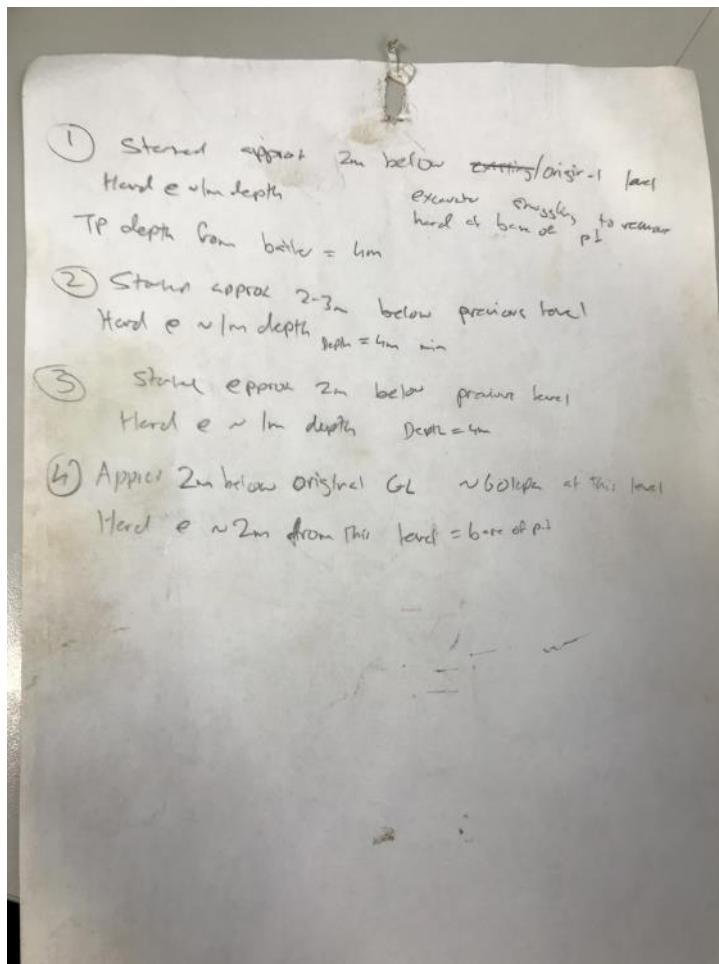 ① Started approx 2m below existing/original level
Hard @ ~1m depth
excavator struggling to remove
hard at base of pit
TP depth from = 4m
② Started approx 2-3m below previous level
Hard @ ~1m depth Depth = 4m min
③ Started approx 2m below previous level
Hard @ ~1m depth Depth = 4m
④ Approx 2m below original GL ~60kpa at this level
Hard @ ~2m from this level = base of pit